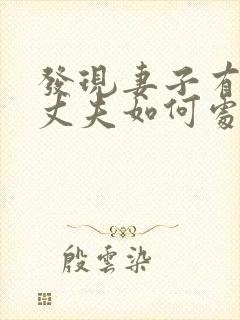 發現妻子有
丈夫如何處
殷雲染